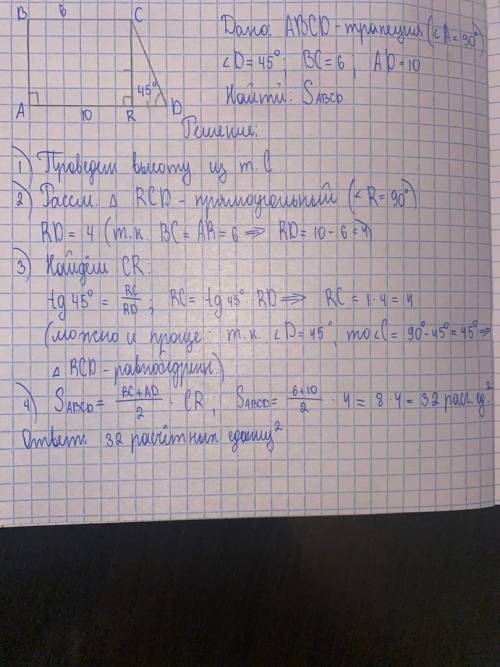 B 6 C
45°
A 10 R D
Дано: ABCD - трапеция (∠A = 90°)
∠D = 45°; BC = 6; AD = 10
Найти: SABCD
Решение:
1) Проведем высоту из т. C
2) Рассм. △ RCD - прямоугольный (∠R = 90°)
RD = 4 (т.к. BC = AR = 6 ⇒ RD = 10 - 6 = 4)
3) Найдём CR.
tg 45° = RC/RD; RC = tg 45° · RD ⇒ RC = 1 · 4 = 4
(можно и проще: т.к. ∠D = 45°, то ∠C = 90° - 45° = 45° ⇒
△ RCD - равнобедрен.)
4) SABCD = BC + AD/2 · CR, SABCD = 6 + 10/2 · 4 = 8 · 4 = 32 расч. ед.²
Ответ: 32 расчётных единиц²